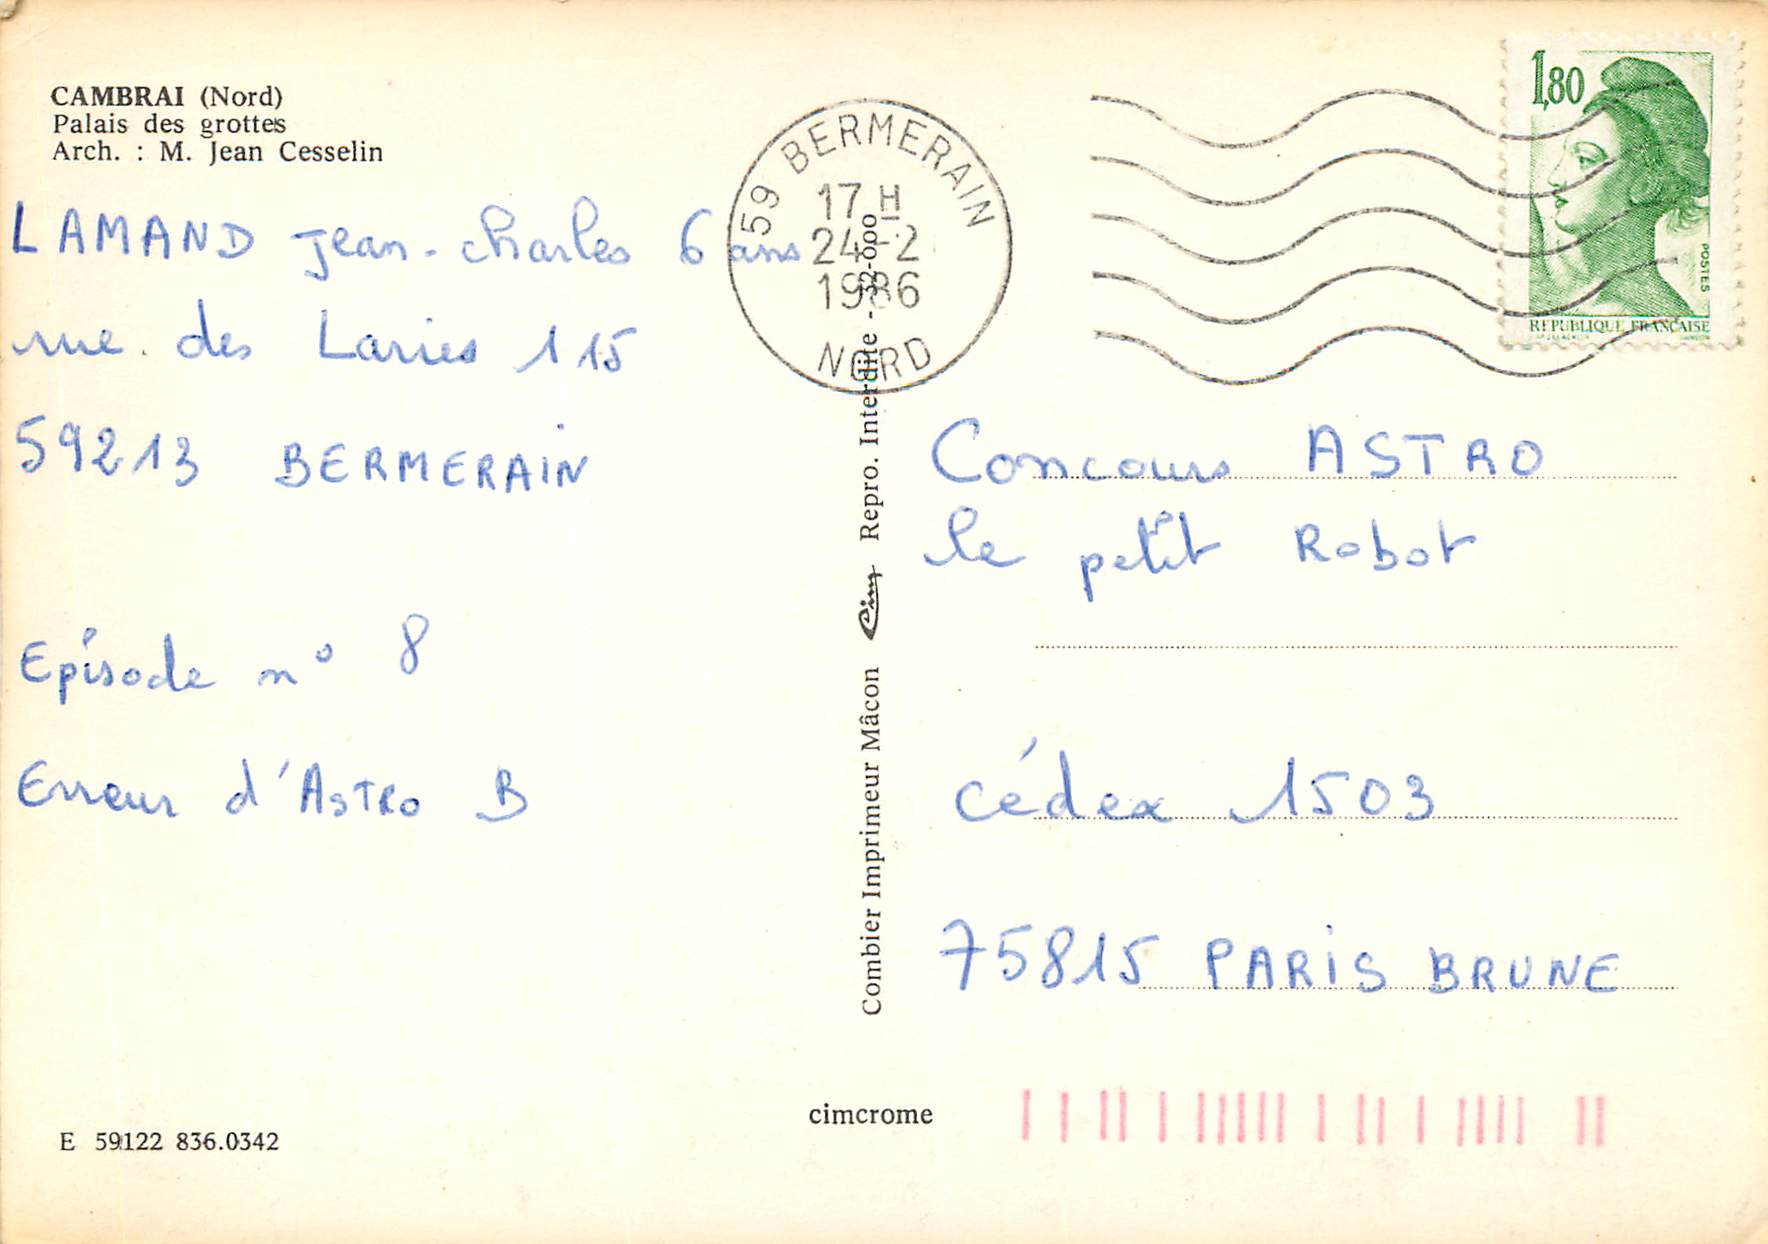 CAMBRAI (Nord)
Palais des grottes
Arch. : M. Jean Cesselin
LAMAND Jean-charles 6 ans
rue des Laries 115
59213 BERMERAIN
Episode n° 8
Erreur d'ASTRO B
E 59122 836.0342
Combier Imprimeur Mâcon Cim Repro. Interdite - 32-000
cimcrome
59 BERMERAIN
17 H
24-2
1986
NORD
1,80
POSTES
REPUBLIQUE FRANCAISE
Concours ASTRO
le petit Robot
cédex 1503
75815 PARIS BRUNE